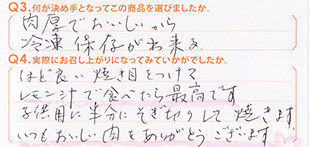 Q3.何が決め手となってこの商品を選びましたか。
肉厚でおいしいから
冷凍保存が出来る
Q4.実際にお召し上がりになってみていかがでしたか。
ほど良い焼き目をつけて
レモン汁で食べたら最高です
子供用に半分にそぎ切りして焼きます
いつもおいしい肉をありがとうございます